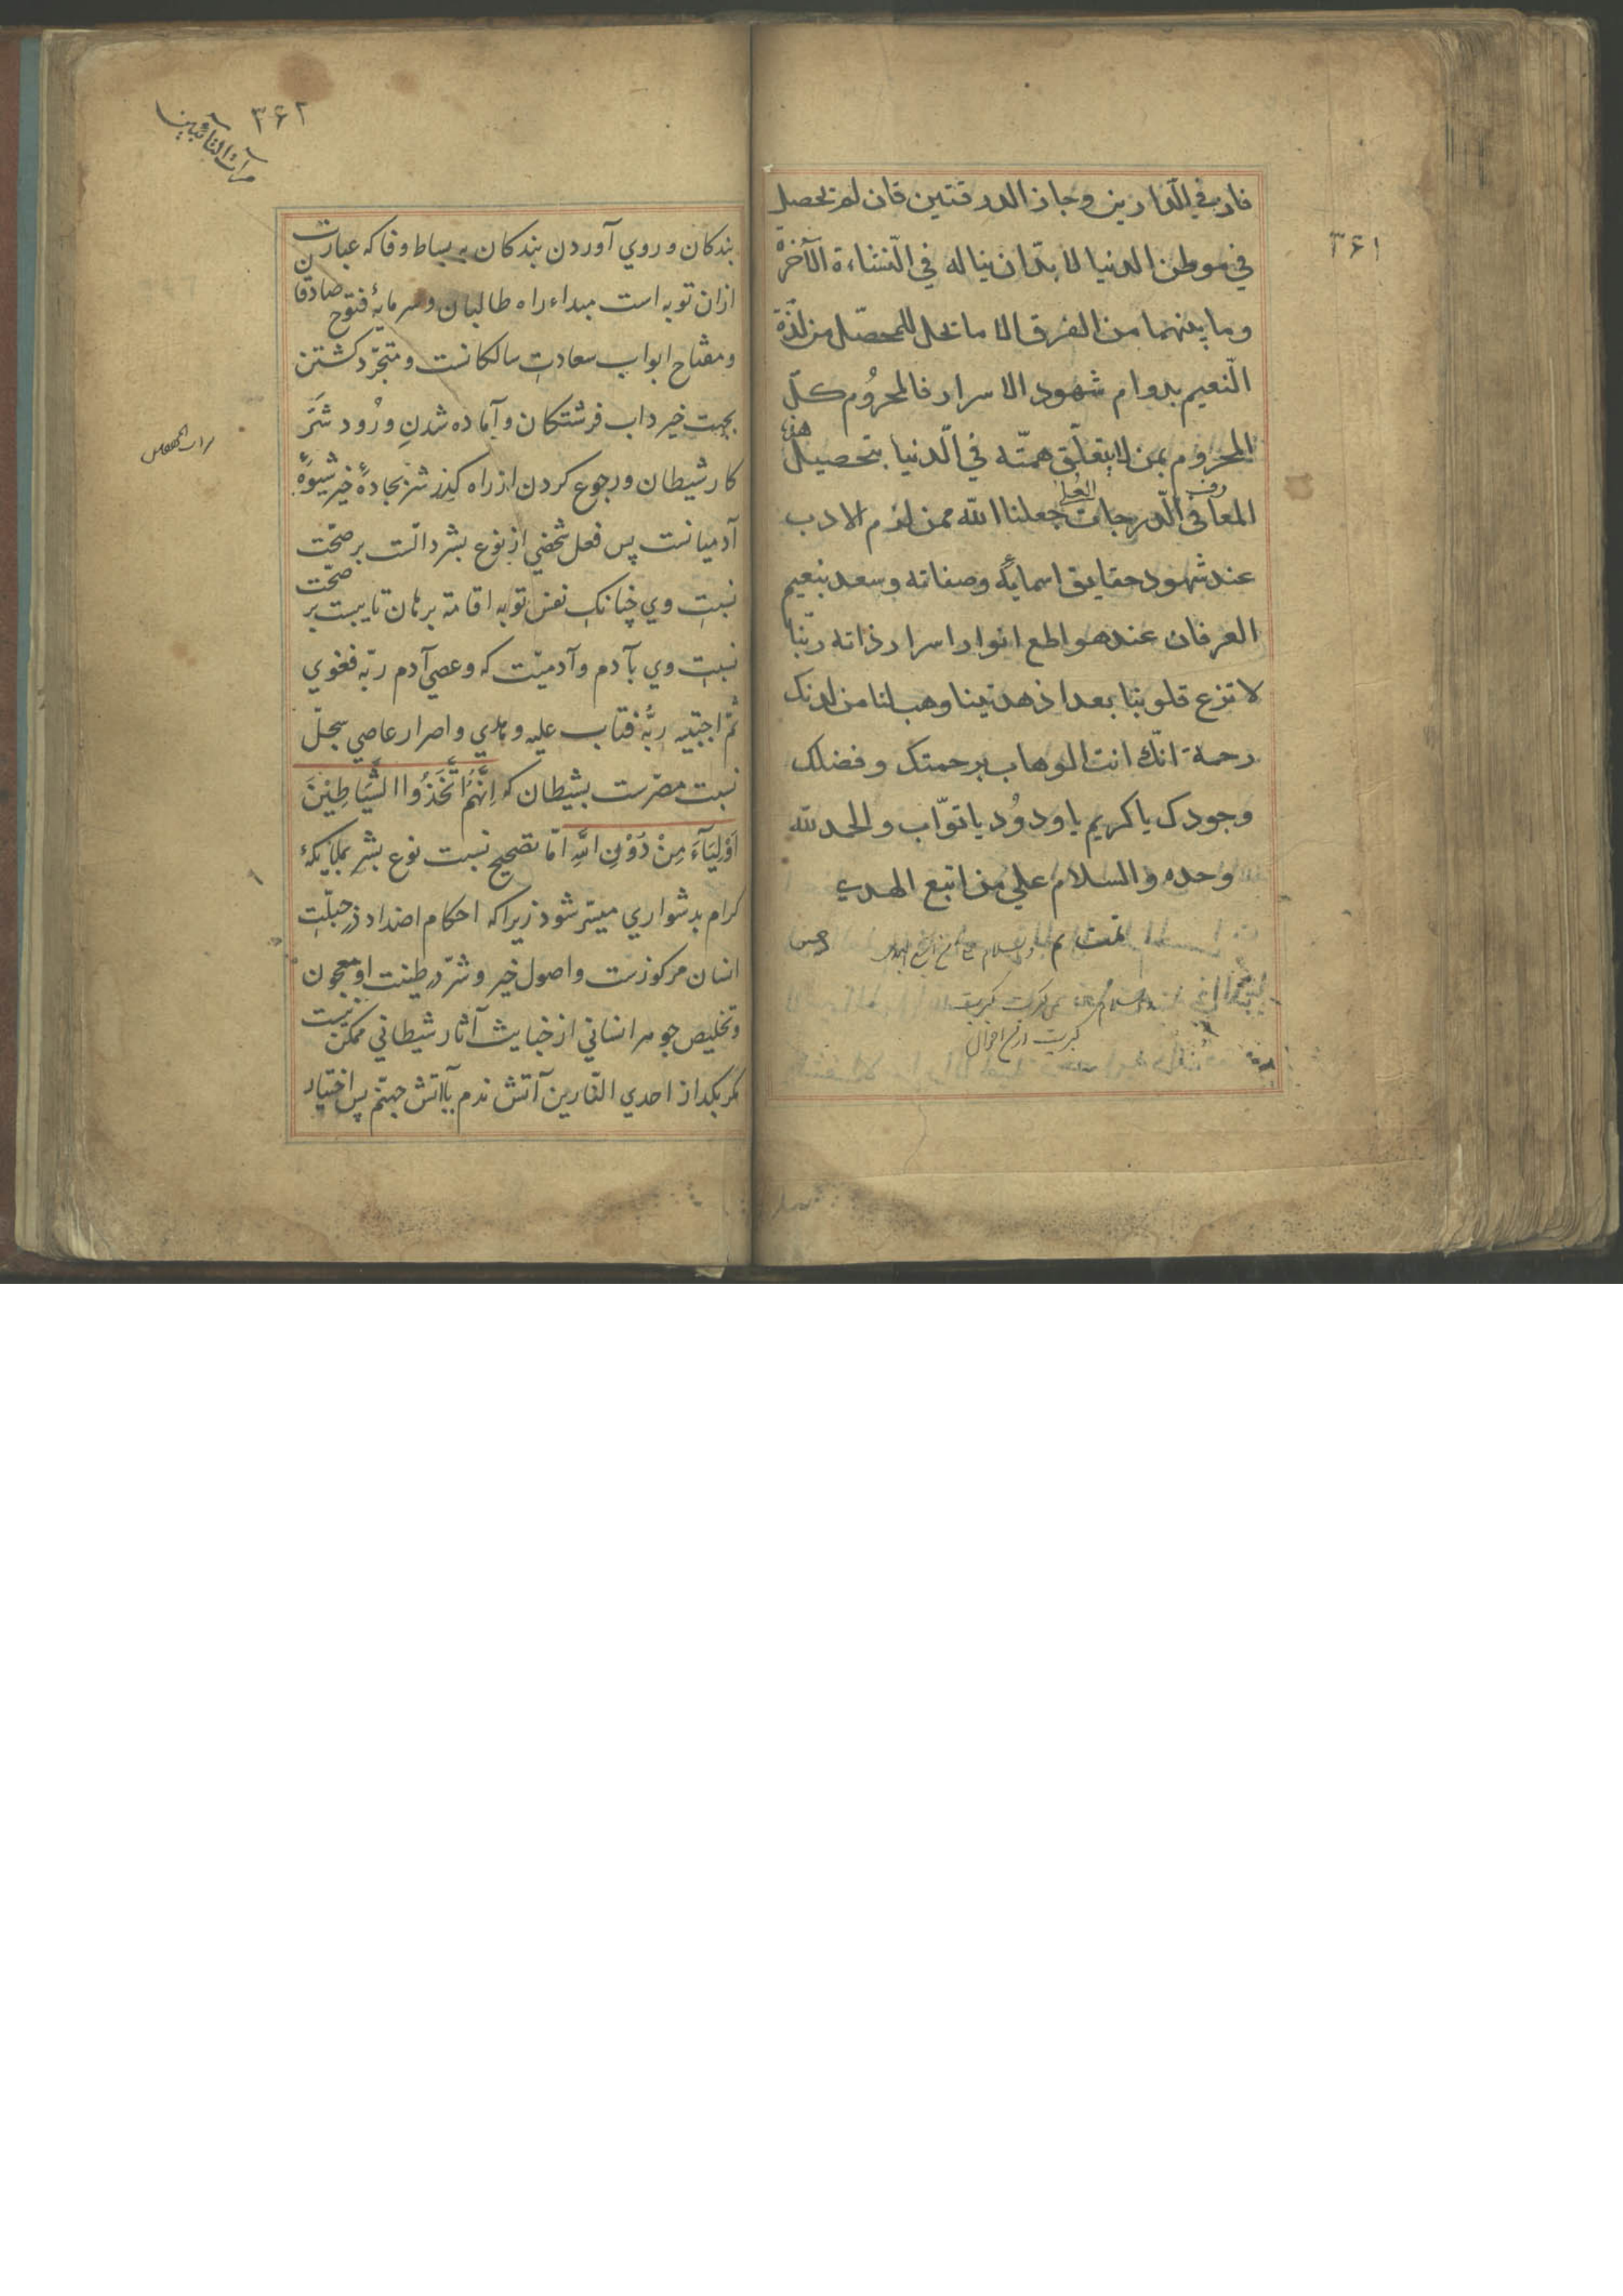 ۳۶۱
فاز فی الدارین وحاز الدرقتین فان لم تحصل
فی موطن الدنیا لا بدّ ان یناله فی النّشاءة الآخرة
وما بینهما من الفرق الا ما تخل للمحصّل من لذّة
النّعیم بدوام شهود الاسرار فالمحرُوم کلّ
المحروم بمن لا یتعلّق همّته فی الّدنیا بتحصیل هذه
المعارف فی الّدرجات العُلی جعلنا الله ممن لزم الادب
عند شهود حقایق اسمایٔه وصفاته وسعد بنعیم
العرفان عند هواطع انوار اسرار ذاته ربّنا
لا تزغ قلوبنا بعد اذ هدیتنا وهب لنا من لدنک
رحمة انّک انت الوهاب برحمتک وفضلک
وجودک یا کریم یا ودوُد یا توّاب والحمد لله
وحده والسلام علی من اتبع الهدی
تمت
۳۶۲
مرآت التائبین
بندکان و روي آوردن بندکان به بساط وفا که عبارت
ازان توبه است مبداء راه طالبان و سرمایهٔ فتوح صادقان
و مفتاح ابواب سعادتِ سالکانست و متجرّد کشتن
بجهت خیر داب فرشتکان و آماده شدنِ ورُود شَرَ
کار شیطان و رجوع کردن از راه کذر شر بجادهٔ خیر شیوهٔ
آدمیانست پس فعل شخصي از نوع بشر دالست بر صحّت
نسبتِ وي چنانک نفس توابه اقامة برهان تایبست بر صحّت
نسبتِ وي بآدم و آدمیّت که وعصي آدم ربّه فغوي
ثمّ اجتبیه ربُّه فتاب علیه وهدي و اصرار عاصي سجلّ
نسبت مصرّست بشیطان که اِنَّهُمُ اتَّخَذُوا الشَّیَاطِیْنَ
اَوْلِیَآءَ مِنْ دُوْنِ اللهِ امّا تصحیح نسبت نوع بشر بملایٔکهٔ
کرام بدشواري میسّر شود زیرا که احکام اضداد در جبلّتِ
انسان مرکوزست و اصول خیر و شرّ در طینت او معجون
و تخلیص جوهر انساني از خبایث آثار شیطاني ممکن نیست
مکر بکداز احدي النّارین آتش ندم یا آتش جهنّم پس اختیار